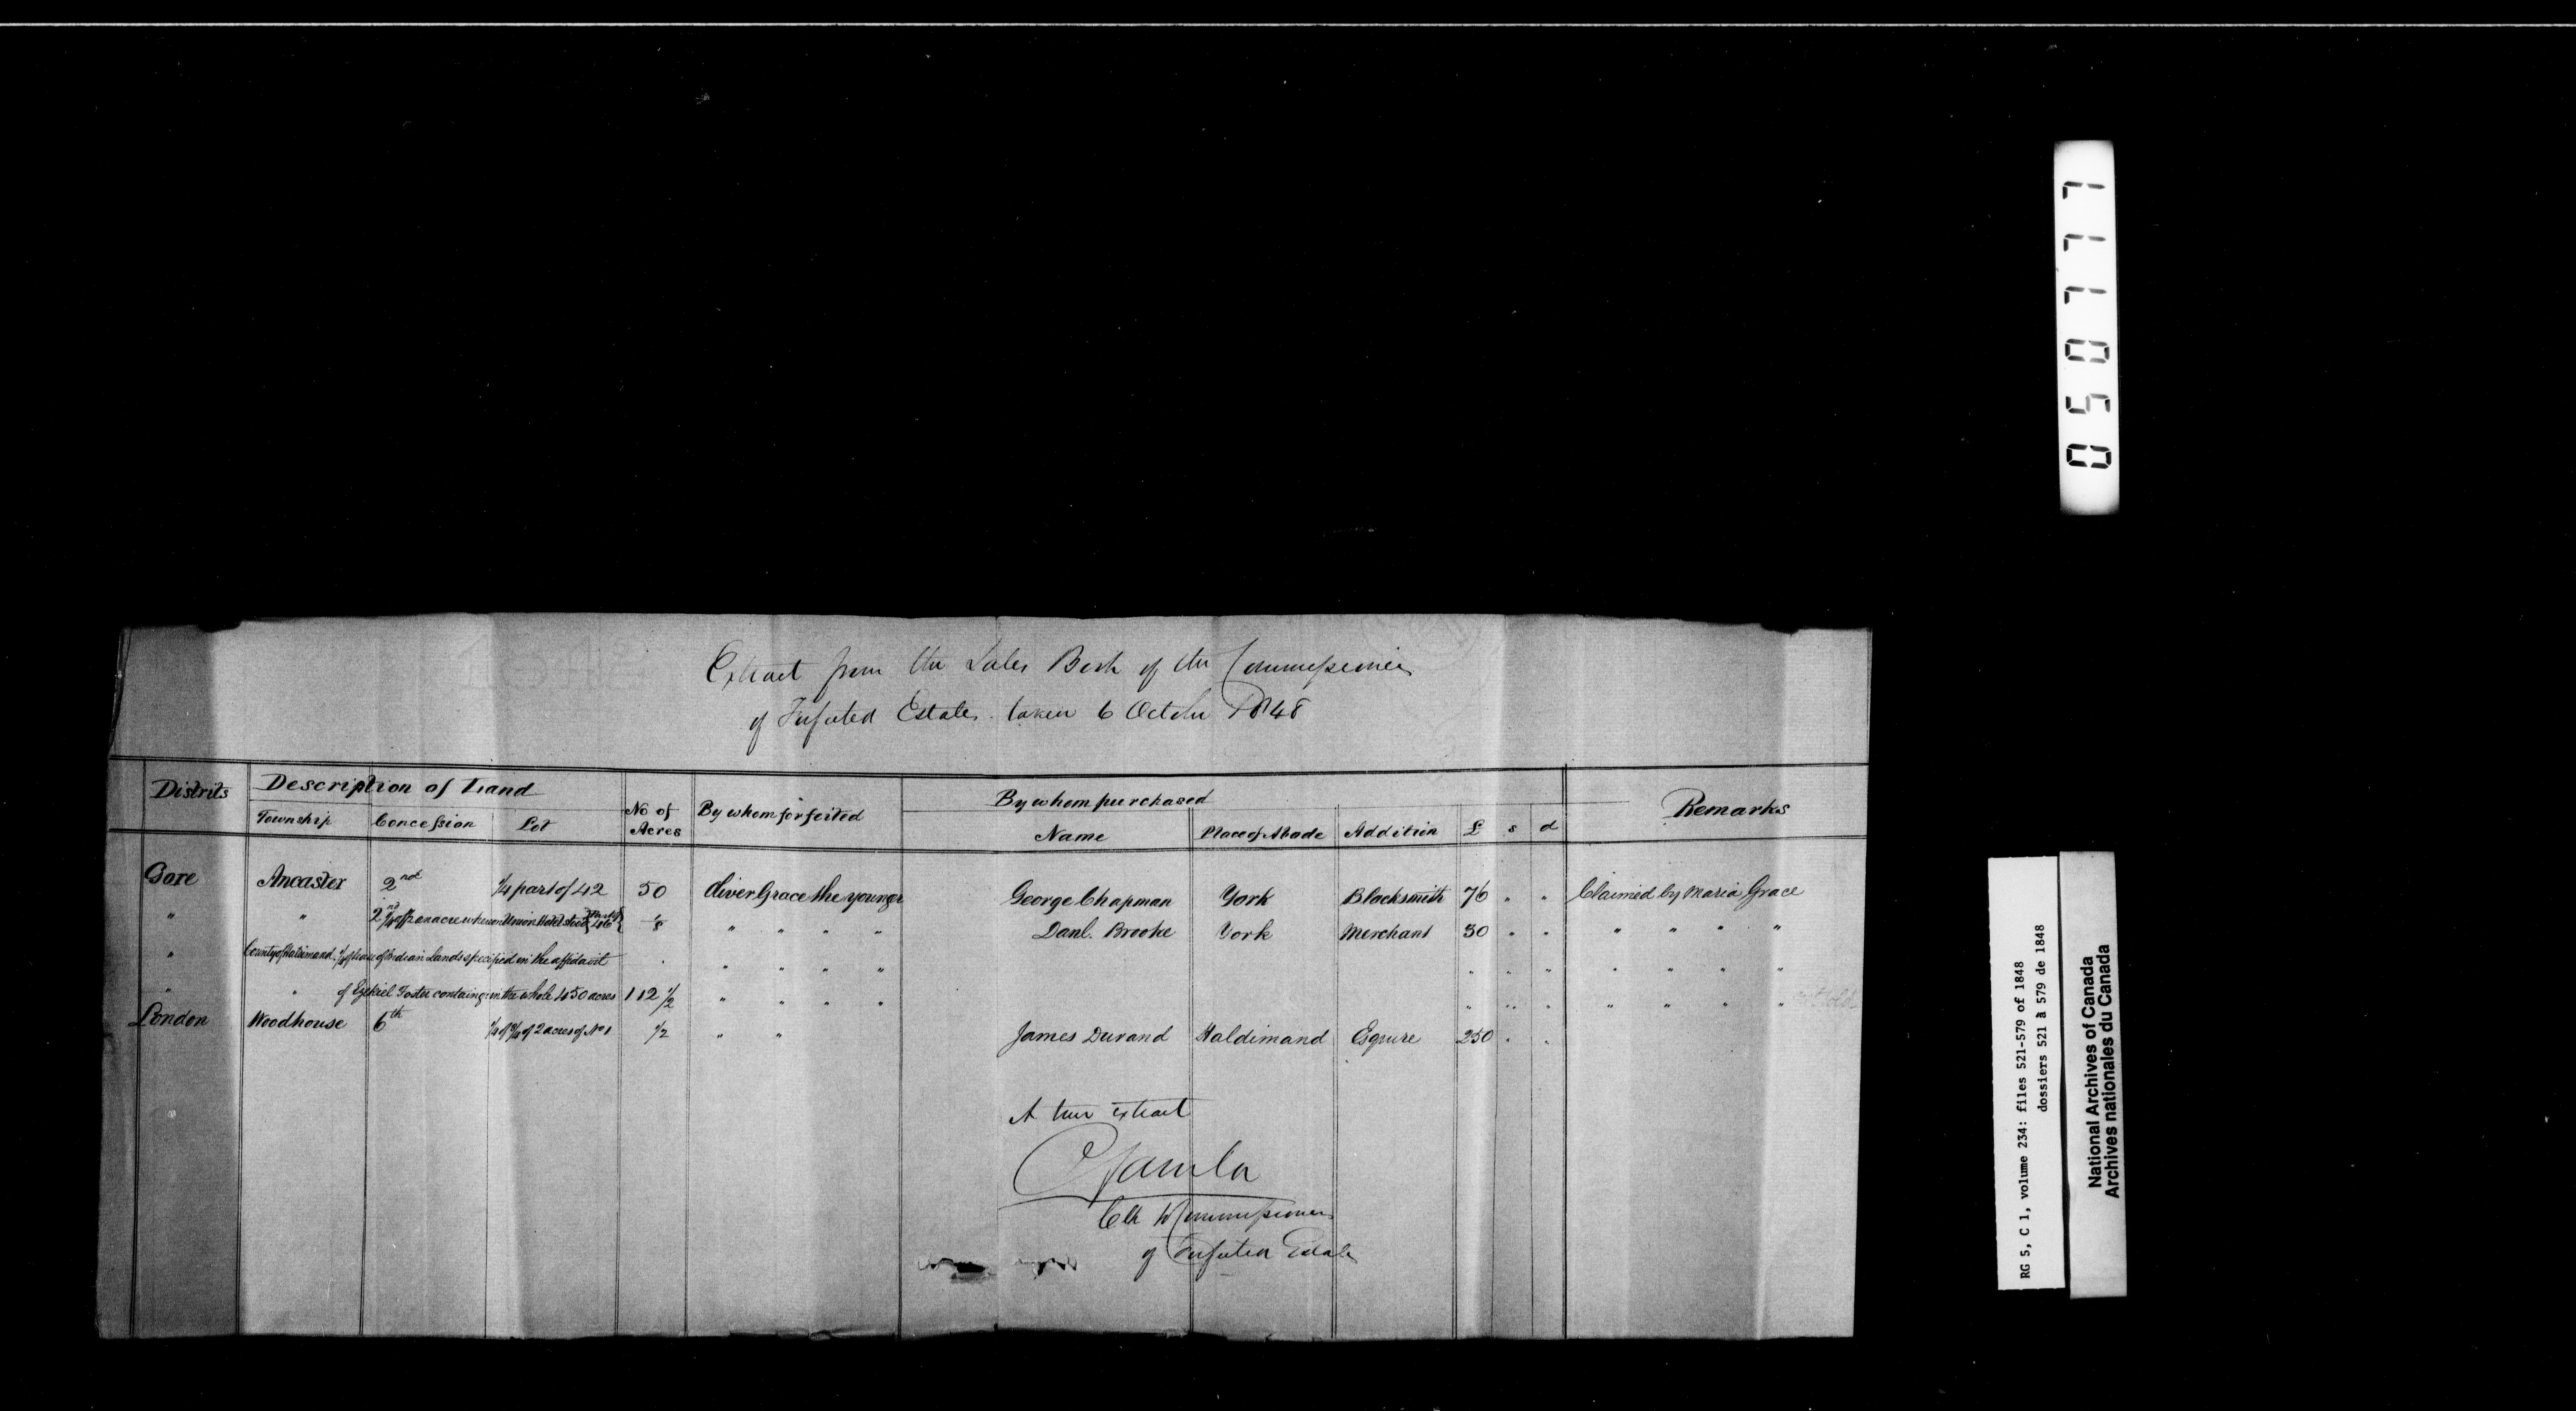 Extract from the Sales Book of the Commissioners
of Forfeited Estates taken 6 October 1848
Districts Description of Land No of Acres By whom forfeited By whom purchased Remarks
Township Concession Lot Name Place of Abode Addition £ s d
Gore Ancaster 2nd 1/4 part of 42 50 Oliver Grace the younger George Chapman York Blacksmith 76 " " Claimed by Maria Grace
" " 2nd 1/4 of 1/2 an acre whereon Union Hotel stood 46 1/8 " " " " Danl. Brooke York Merchant 30 " " " " " "
" County of Haldimand 1/4 share of Indian Lands specified in the affidavit " " " " " " " " " " "
" " of Ezekiel Foster containg in the whole 450 acres 112 1/2 " " " " " " " " " " "
London Woodhouse 6th 1/4 of 3/4 of 2 acres of No 1 1/2 " " James Durand Haldimand Esquire 250 " "
A true extract
Clk to Commissioners
of Forfeited Estates
050777
RG 5, C 1, volume 234: files 521-579 of 1848
dossiers 521 à 579 de 1848
National Archives of Canada
Archives nationales du Canada